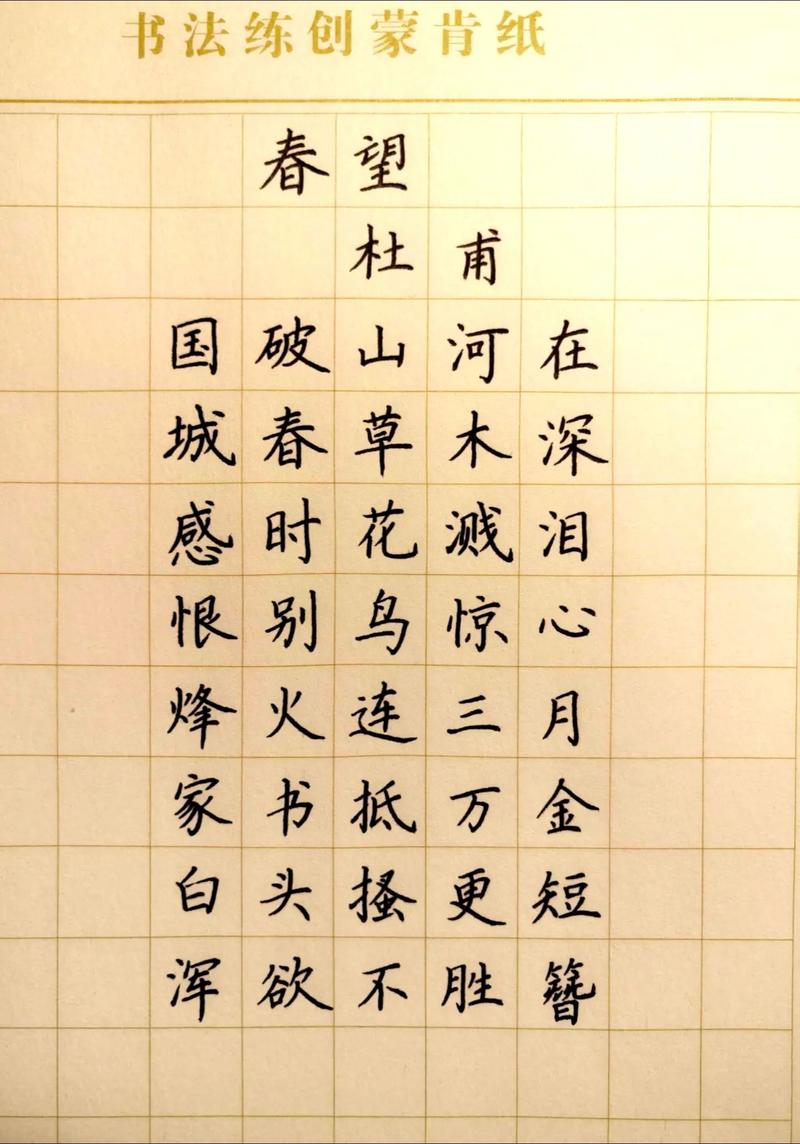 书法练创蒙肯纸
春望
杜甫
国破山河在
城春草木深
感时花溅泪
恨别鸟惊心
烽火连三月
家书抵万金
白头搔更短
浑欲不胜簪